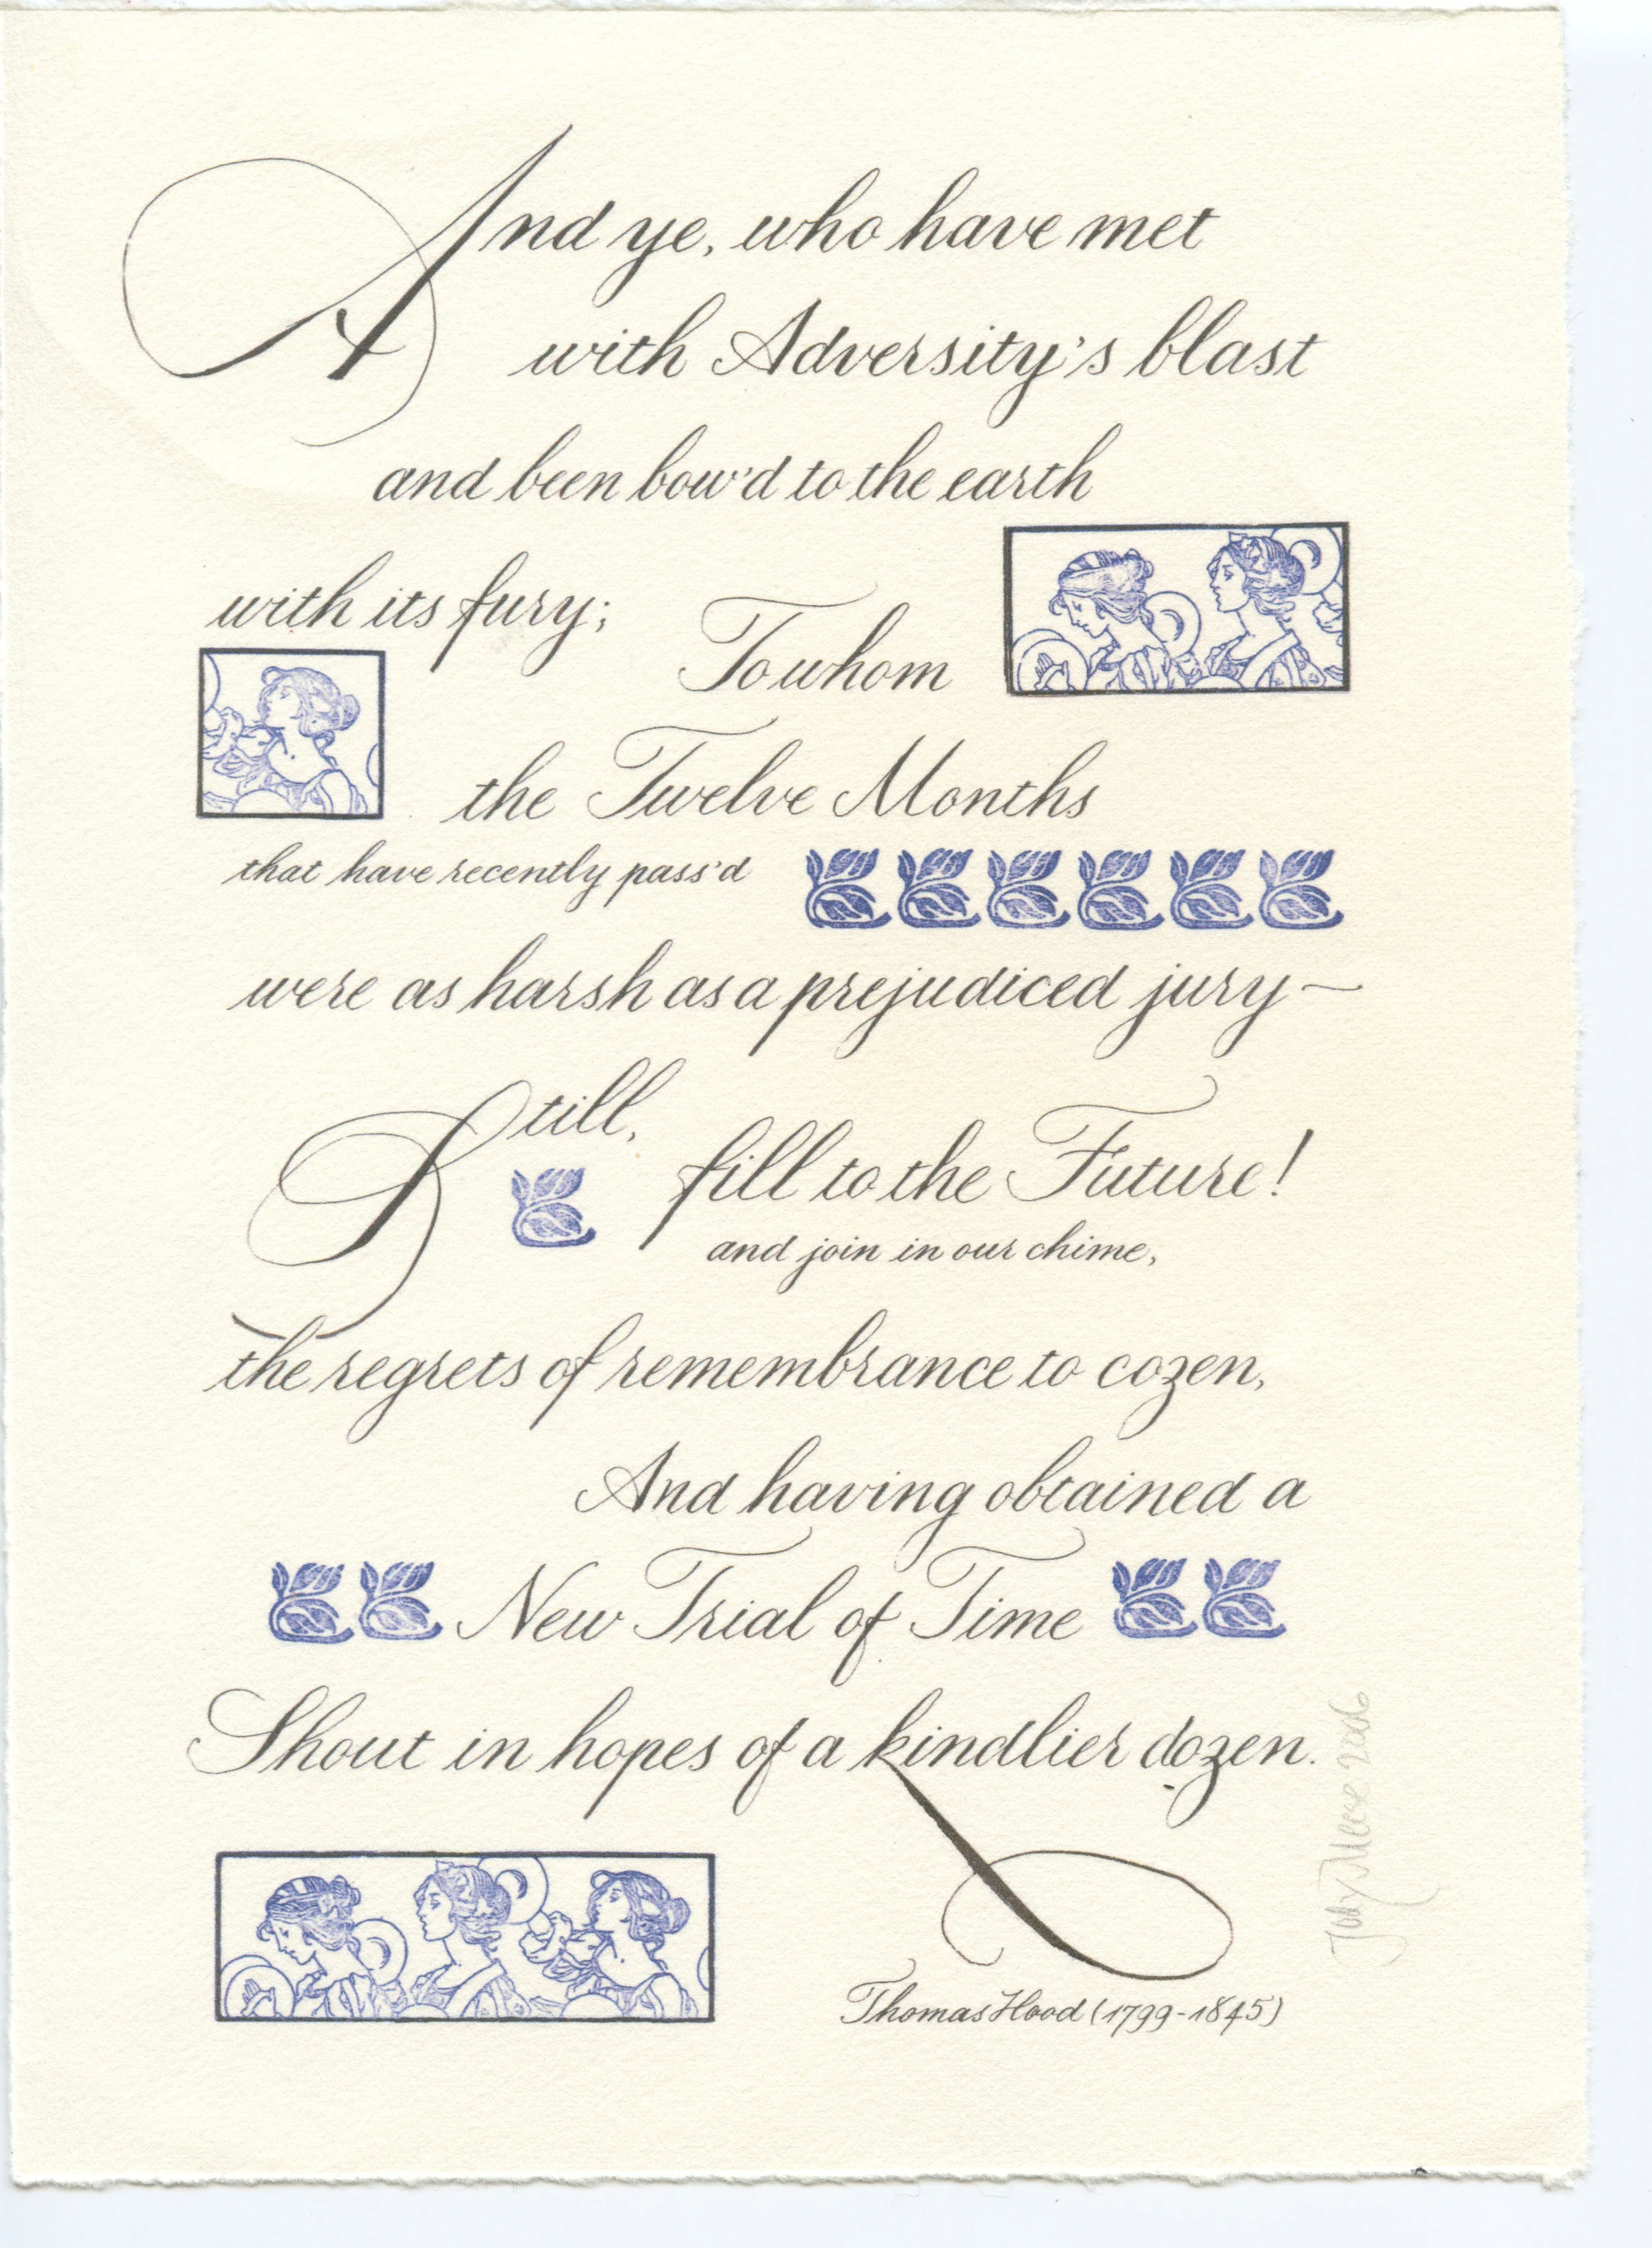 And ye, who have met
with Adversity's blast
and been bow'd to the earth
with its fury;
To whom
the Twelve Months
that have recently pass'd
were as harsh as a prejudiced jury—
Still,
fill to the Future!
and join in our chime,
the regrets of remembrance to cozen,
And having obtained a
New Trial of Time
Shout in hopes of a kindlier dozen.
Thomas Hood (1799-1845)
2006